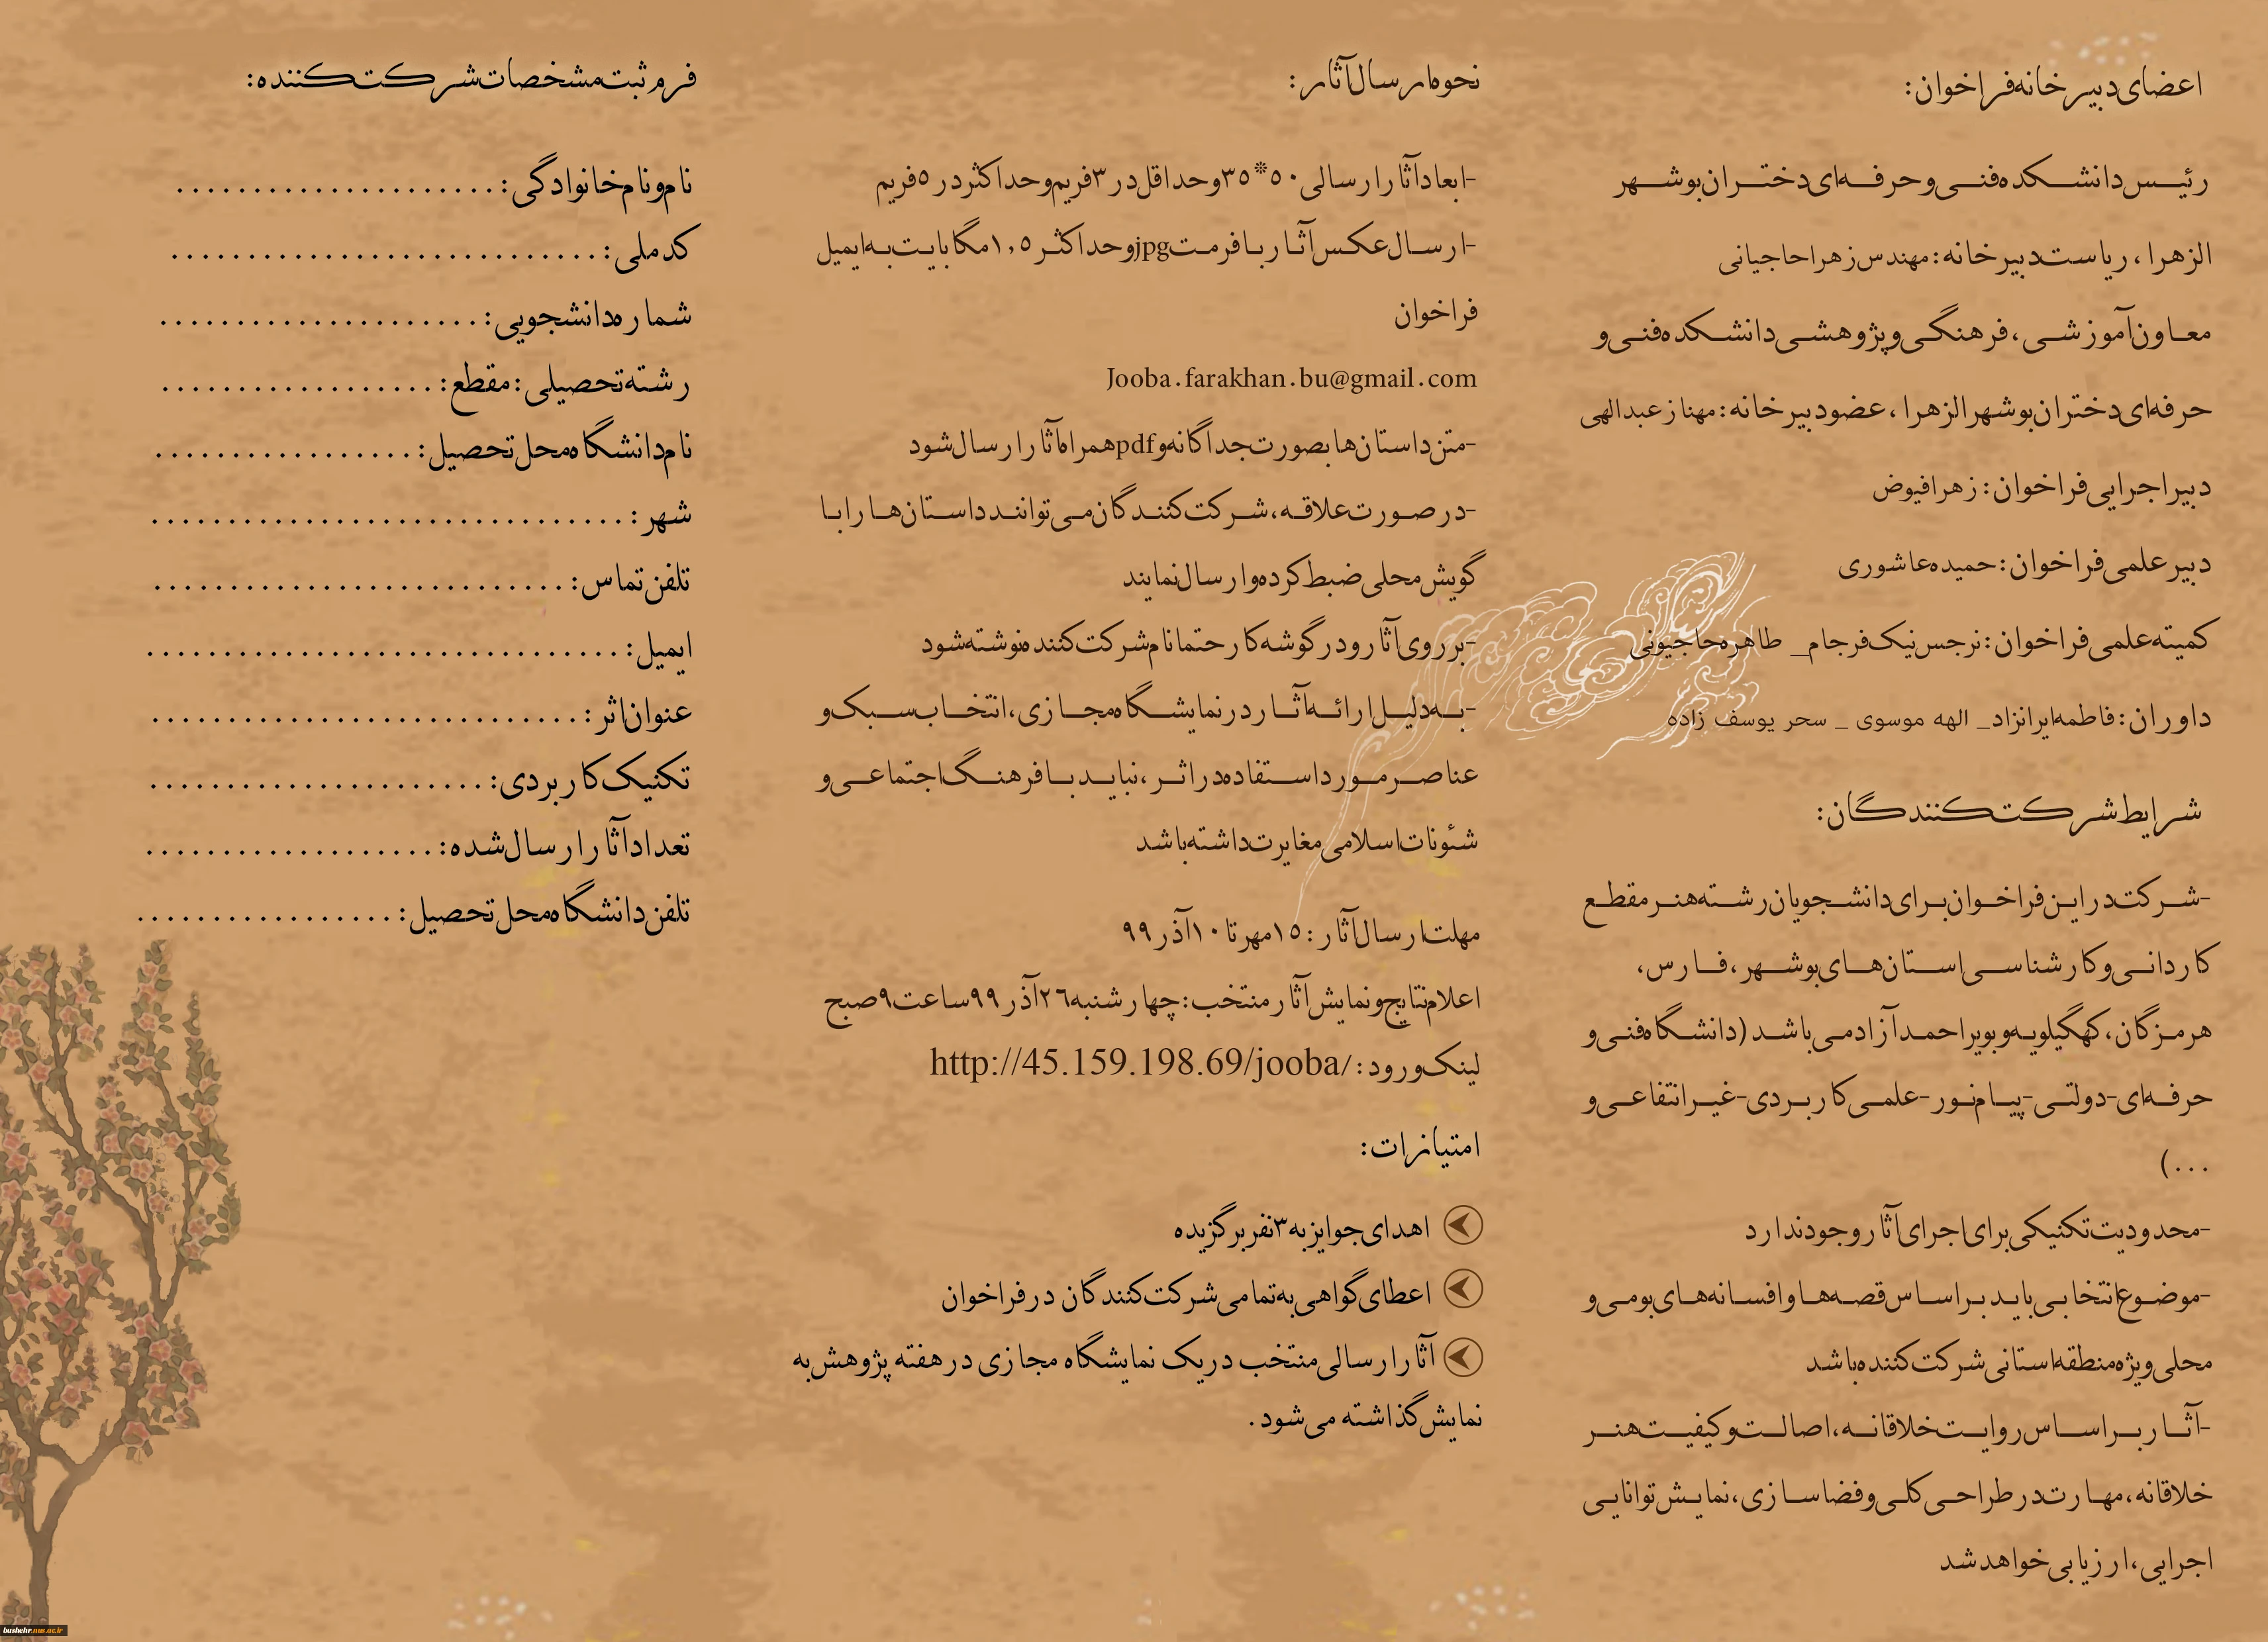 اعضای دبیرخانه فراخوان:
رئیس دانشکده فنی و حرفه‌ای دختران بوشهر
الزهرا، ریاست دبیرخانه: مهندس زهرا حاجیانی
معاون آموزشی، فرهنگی و پژوهشی دانشکده فنی و
حرفه‌ای دختران بوشهر الزهرا، عضو دبیرخانه: مهناز عبدالهی
دبیر اجرایی فراخوان: زهرا فیوض
دبیر علمی فراخوان: حمیده عاشوری
کمیته علمی فراخوان: نرجس نیک فرجام_ طاهره حاجیونی
داوران: فاطمه ایرانزاد_ الهه موسوی _ سحر یوسف زاده
شرایط شرکت کنندگان:
-شرکت در این فراخوان برای دانشجویان رشته هنر مقطع
کاردانی و کارشناسی استان‌های بوشهر، فارس،
هرمزگان، کهگیلویه و بویراحمد آزاد می‌باشد (دانشگاه فنی و
حرفه‌ای-دولتی-پیام نور-علمی کاربردی-غیرانتفاعی و
...)
-محدودیت تکنیکی برای اجرای آثار وجود ندارد
-موضوع انتخابی باید براساس قصه‌ها و افسانه‌های بومی و
محلی ویژه منطقه استانی شرکت کننده باشد
-آثار براساس روایت خلاقانه، اصالت و کیفیت هنر
خلاقانه، مهارت در طراحی کلی و فضاسازی، نمایش توانایی
اجرایی، ارزیابی خواهد شد
نحوه ارسال آثار:
-ابعاد آثار ارسالی ۵۰*۳۵ و حداقل در ۳ فریم و حداکثر در ۵ فریم
-ارسال عکس آثار با فرمت jpg و حداکثر ۱,۵ مگابایت به ایمیل
فراخوان
Jooba.farakhan.bu@gmail.com
-متن داستان‌ها بصورت جداگانه و pdf همراه آثار ارسال شود
-در صورت علاقه، شرکت کنندگان می‌توانند داستان‌ها را با
گویش محلی ضبط کرده و ارسال نمایند
-بر روی آثار و در گوشه کار حتما نام شرکت کننده نوشته شود
-به دلیل ارائه آثار در نمایشگاه مجازی، انتخاب سبک و
عناصر مورد استفاده در اثر، نباید با فرهنگ اجتماعی و
شئونات اسلامی مغایرت داشته باشد
مهلت ارسال آثار: ۱۵ مهر تا ۱۰ آذر ۹۹
اعلام نتایج و نمایش آثار منتخب: چهارشنبه ۲۶ آذر ۹۹ ساعت ۹ صبح
لینک ورود: http://45.159.198.69/jooba/
امتیازات:
اهدای جوایز به ۳ نفر برگزیده
اعطای گواهی به تمامی شرکت کنندگان در فراخوان
آثار ارسالی منتخب در یک نمایشگاه مجازی در هفته پژوهش به
نمایش گذاشته می‌شود.
فرم ثبت مشخصات شرکت کننده:
نام و نام خانوادگی: .....................
کد ملی: ............................
شماره دانشجویی: .....................
رشته تحصیلی: مقطع: ..................
نام دانشگاه محل تحصیل: .................
شهر: ...............................
تلفن تماس: ...........................
ایمیل: ...............................
عنوان اثر: ............................
تکنیک کاربردی: ......................
تعداد آثار ارسال شده: ...................
تلفن دانشگاه محل تحصیل: .................
bushehr.nus.ac.ir